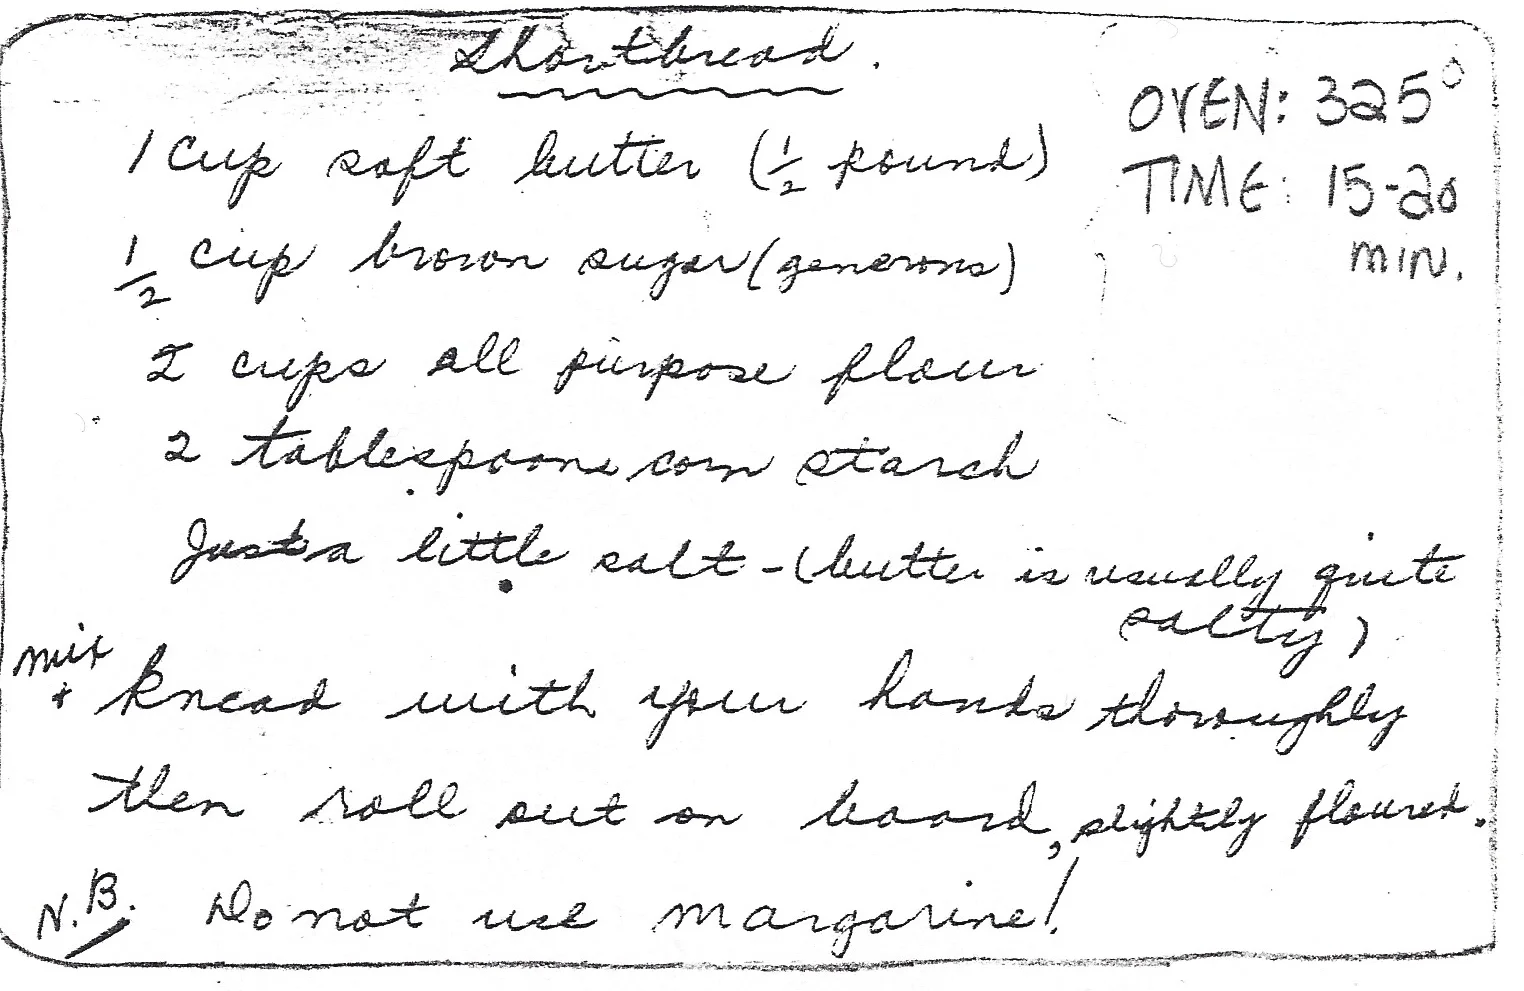 Shortbread.
OVEN: 325°
TIME: 15-20
MIN.
1 cup soft butter (1/2 pound)
1/2 cup brown sugar (generous)
2 cups all purpose flour
2 tablespoons corn starch
Just a little salt - (butter is usually quite
salty)
mix
+ knead with your hands thoroughly
then roll out on board, slightly floured.
N.B. Do not use margarine!